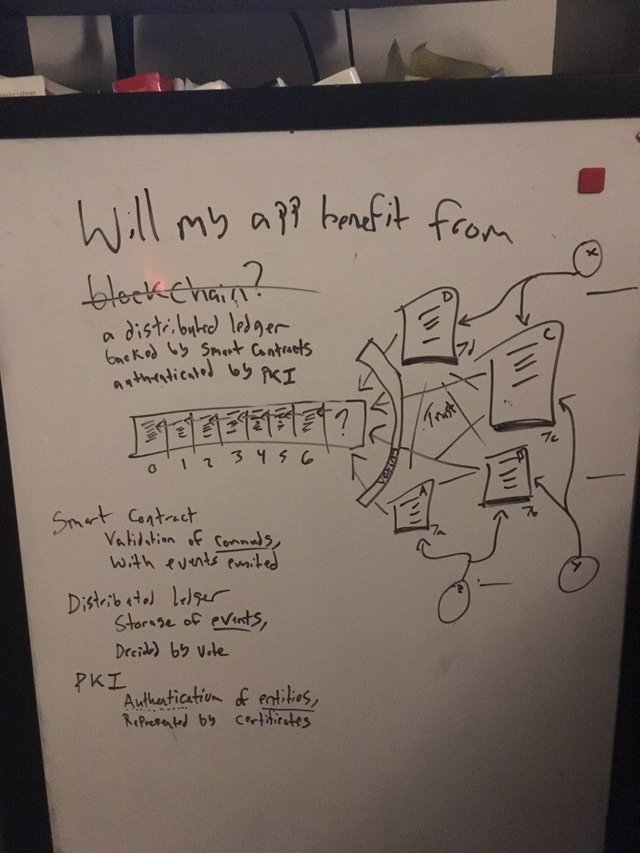 Will my app benefit from
blockchain?
a distributed ledger
backed by Smart Contracts
authenticated by PKI
?
0 1 2 3 4 5 6
Voting
Trust
D
7d
C
7c
B
7b
A
7a
X
Y
Z
Smart Contract
Validation of commands,
With events emitted
Distributed ledger
Storage of events,
Decided by vote
PKI
Authentication of entities,
Represented by certificates